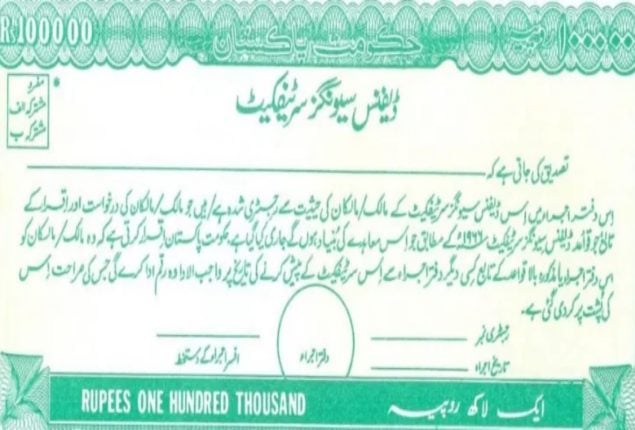 Rs.100000 حکومت پاکستان
ڈیفنس سیونگز سرٹیفکیٹ
*
مفرد
مشترکہ الف
مشترکہ ب
تصدیق کی جاتی ہے کہ
اِس دفتر اجراء میں اِس ڈیفنس سیونگز سرٹیفکیٹ کے مالک/مالکان کی حیثیت سے رجسٹری شدہ ہے/ہیں جو مالک/مالکان کی درخواست اور اقرار کے
تابع جو قواعد ڈیفنس سیونگز سرٹیفکیٹ ۱۹۶۶ء کے مطابق جو اس معاہدے کی بُنیاد ہوں گے جاری کیا گیا ہے حکومت پاکستان اقرار کرتی ہے کہ وہ مالک/مالکان کو
اس دفتر اجراء یا مذکورہ بالا قواعد کے تابع کسی دیگر دفتر اجراء سے اس سرٹیفکیٹ کے پیش کرنے کی تاریخ پر واجب الادا وہ رقم ادا کرے گی جس کی صراحت اِس
کی پشت پر کر دی گئی ہے۔
رجسٹری نمبر
تاریخ اجراء
دفتر اجراء
افسر اجراء کے دستخط
RUPEES ONE HUNDRED THOUSAND ایک لاکھ روپیہ